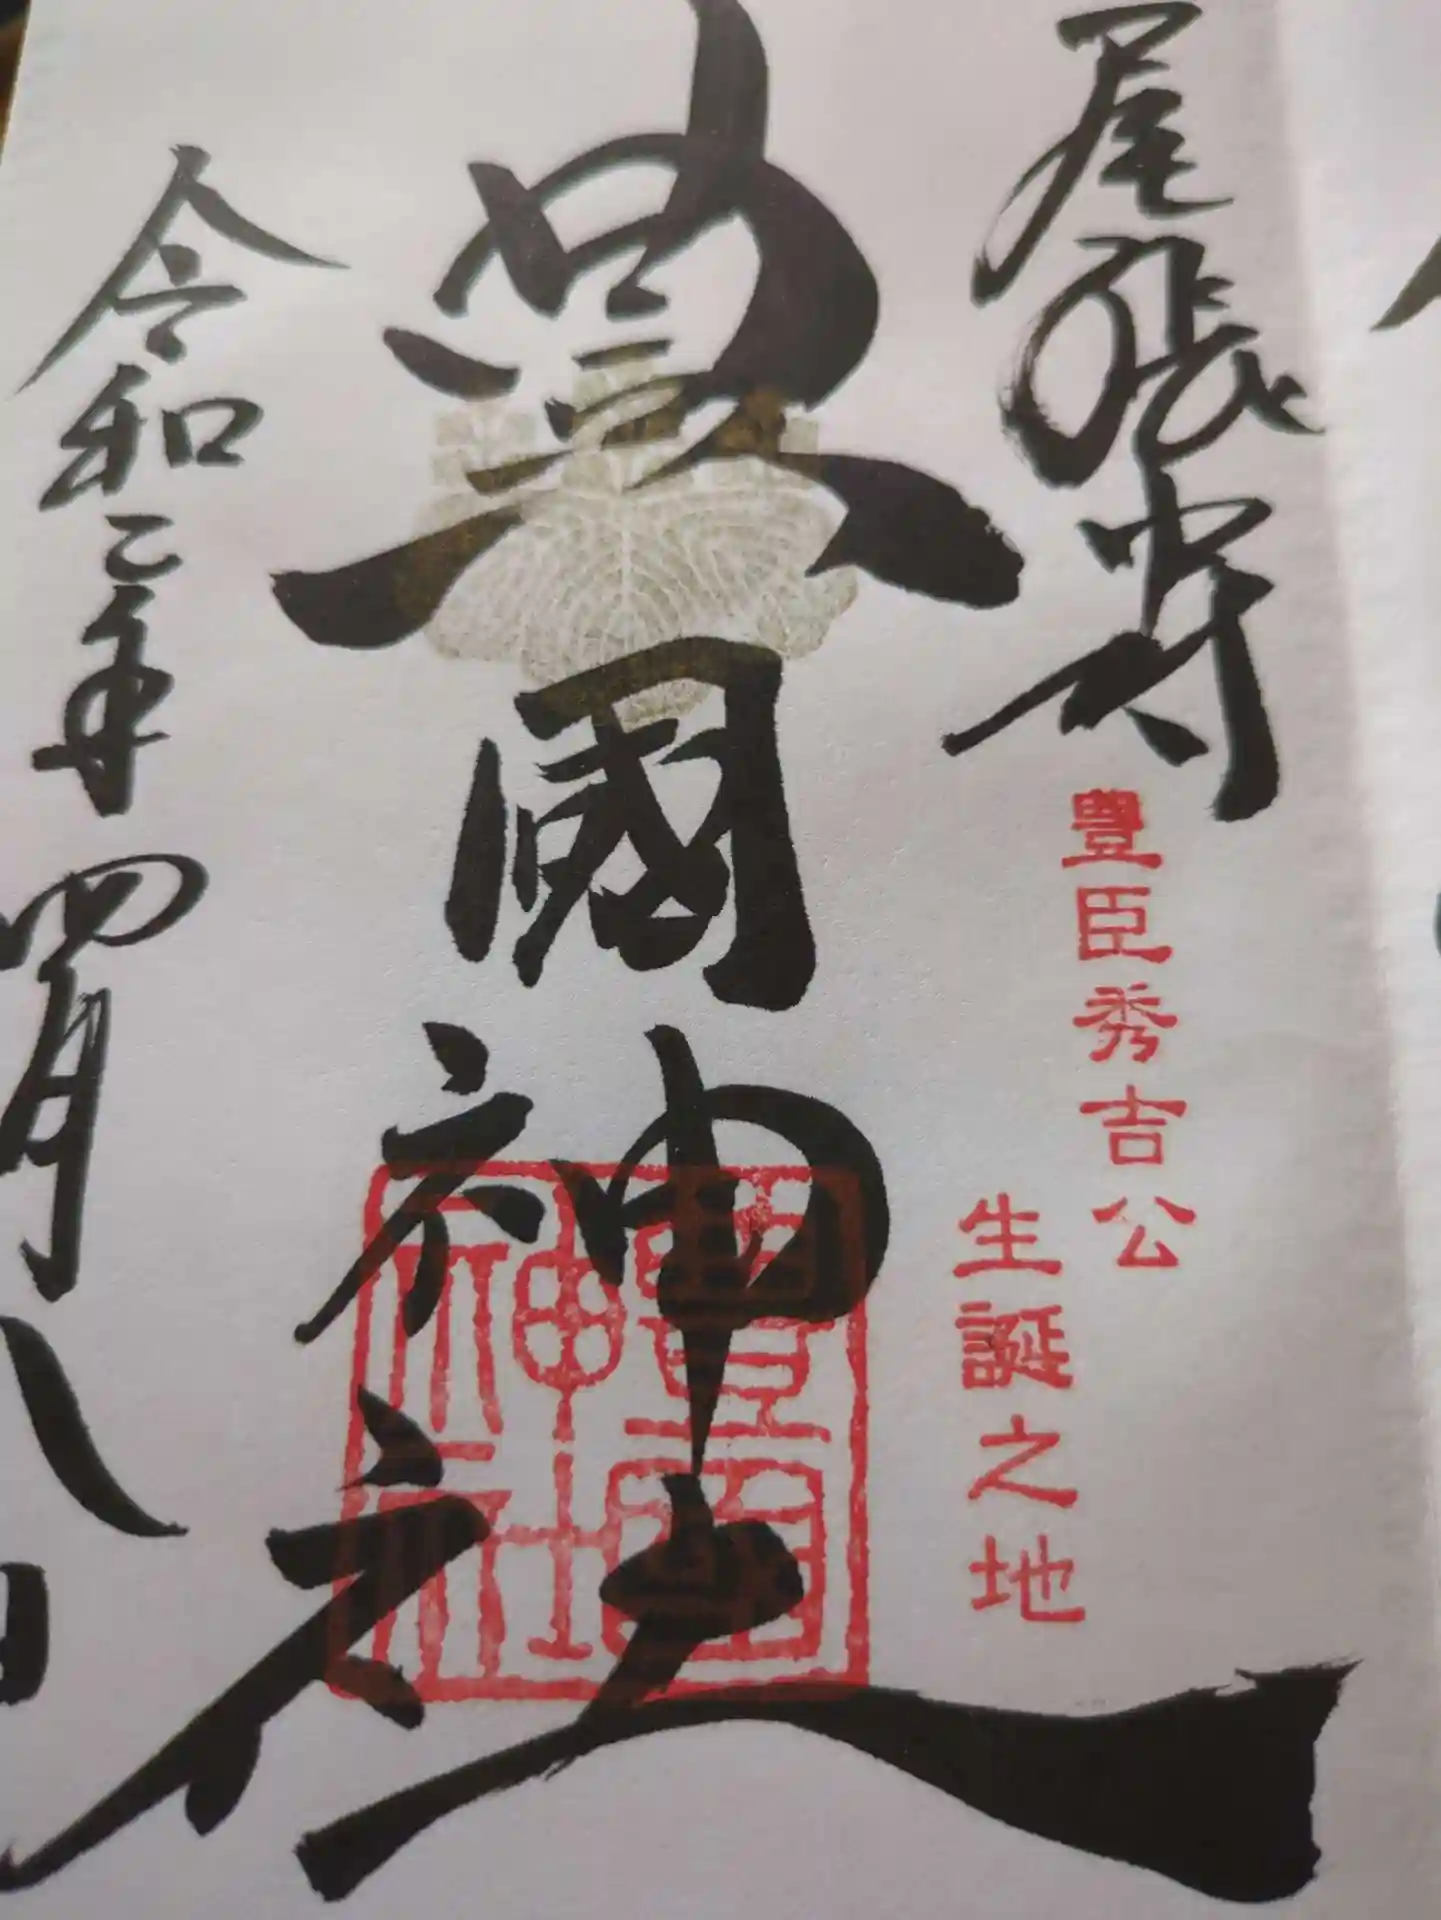 尾張中村
豊臣秀吉公
生誕之地
豊國神社
豊國
神社
令和二年四月八日